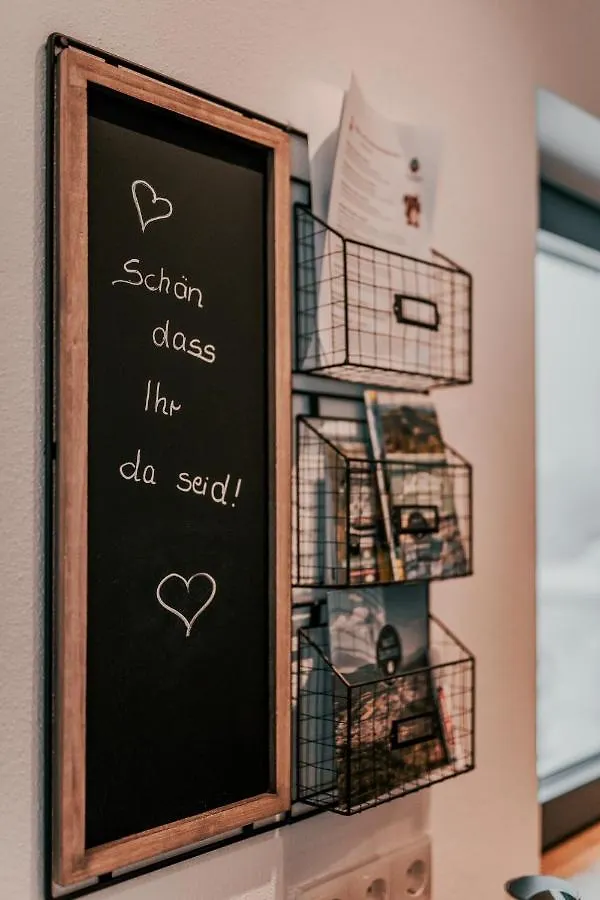 Schön
dass
Ihr
da seid!